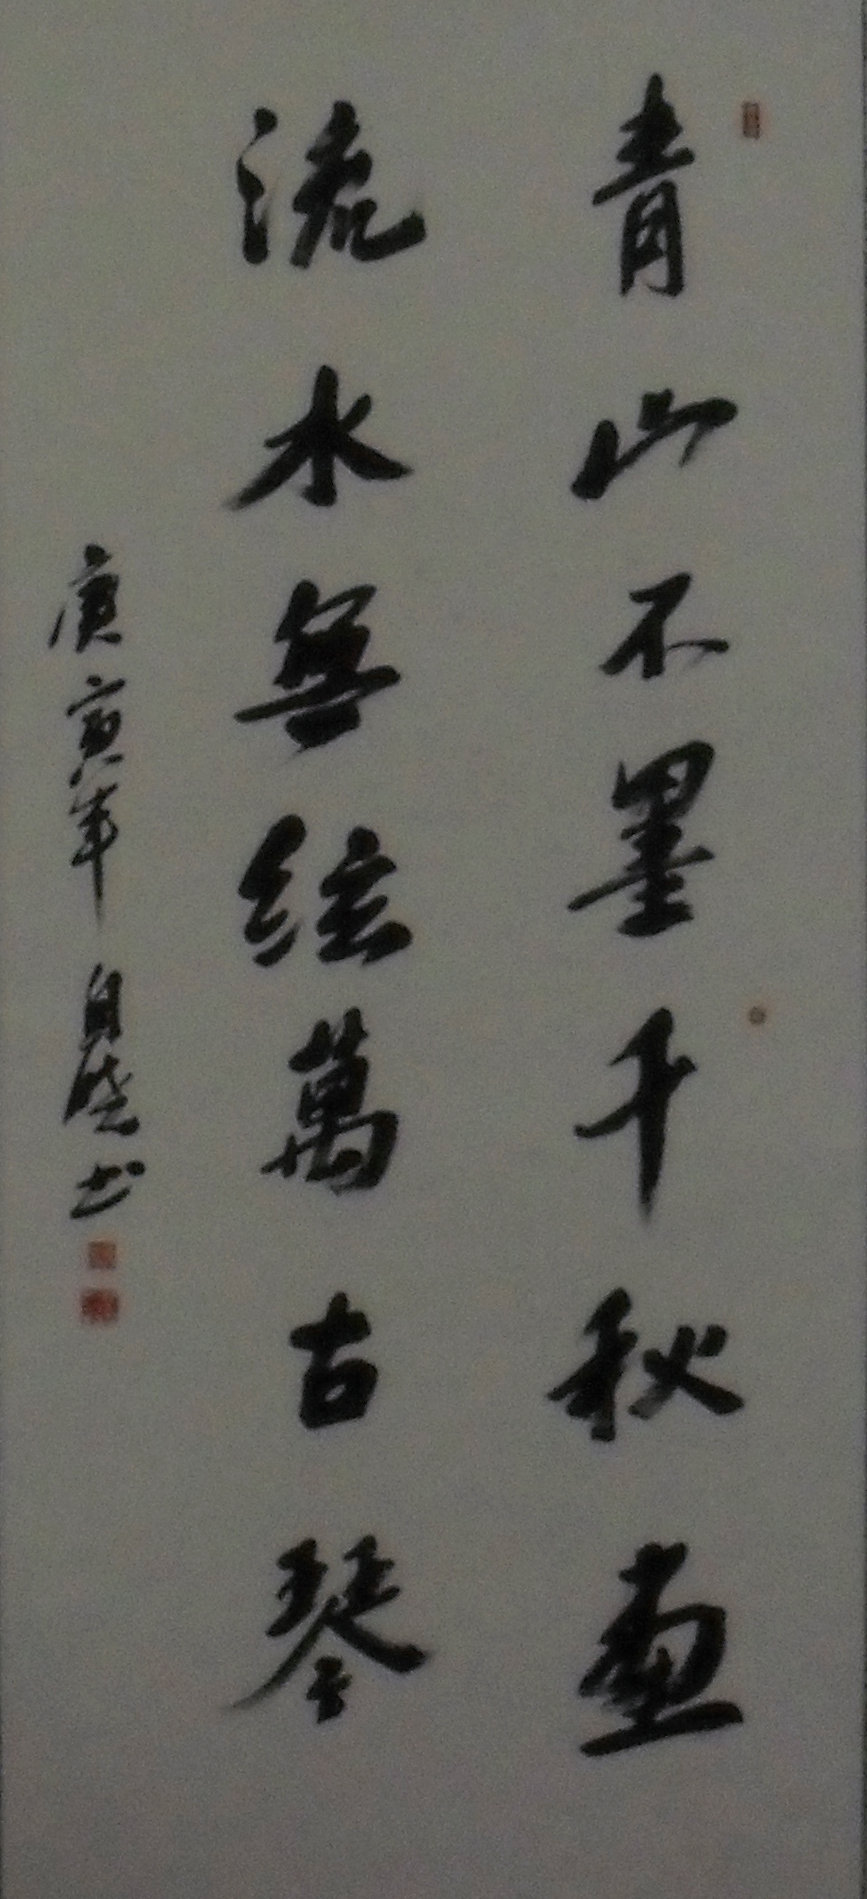 青山不墨千秋畫
流水無絃萬古琴
庚寅年 自 书